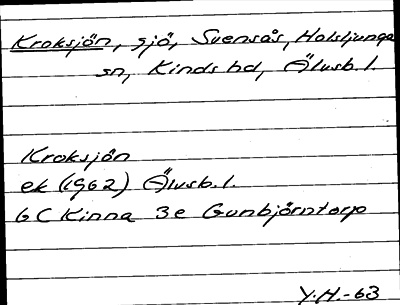 Kroksjön, sjö, Svensås, Holsljunga
sn, Kinds hd, Älvsb. l.
Kroksjön
ek (1962) Älvsb. l.
6 C Kinna 3e Gunbjörntorp
Y.H.-63